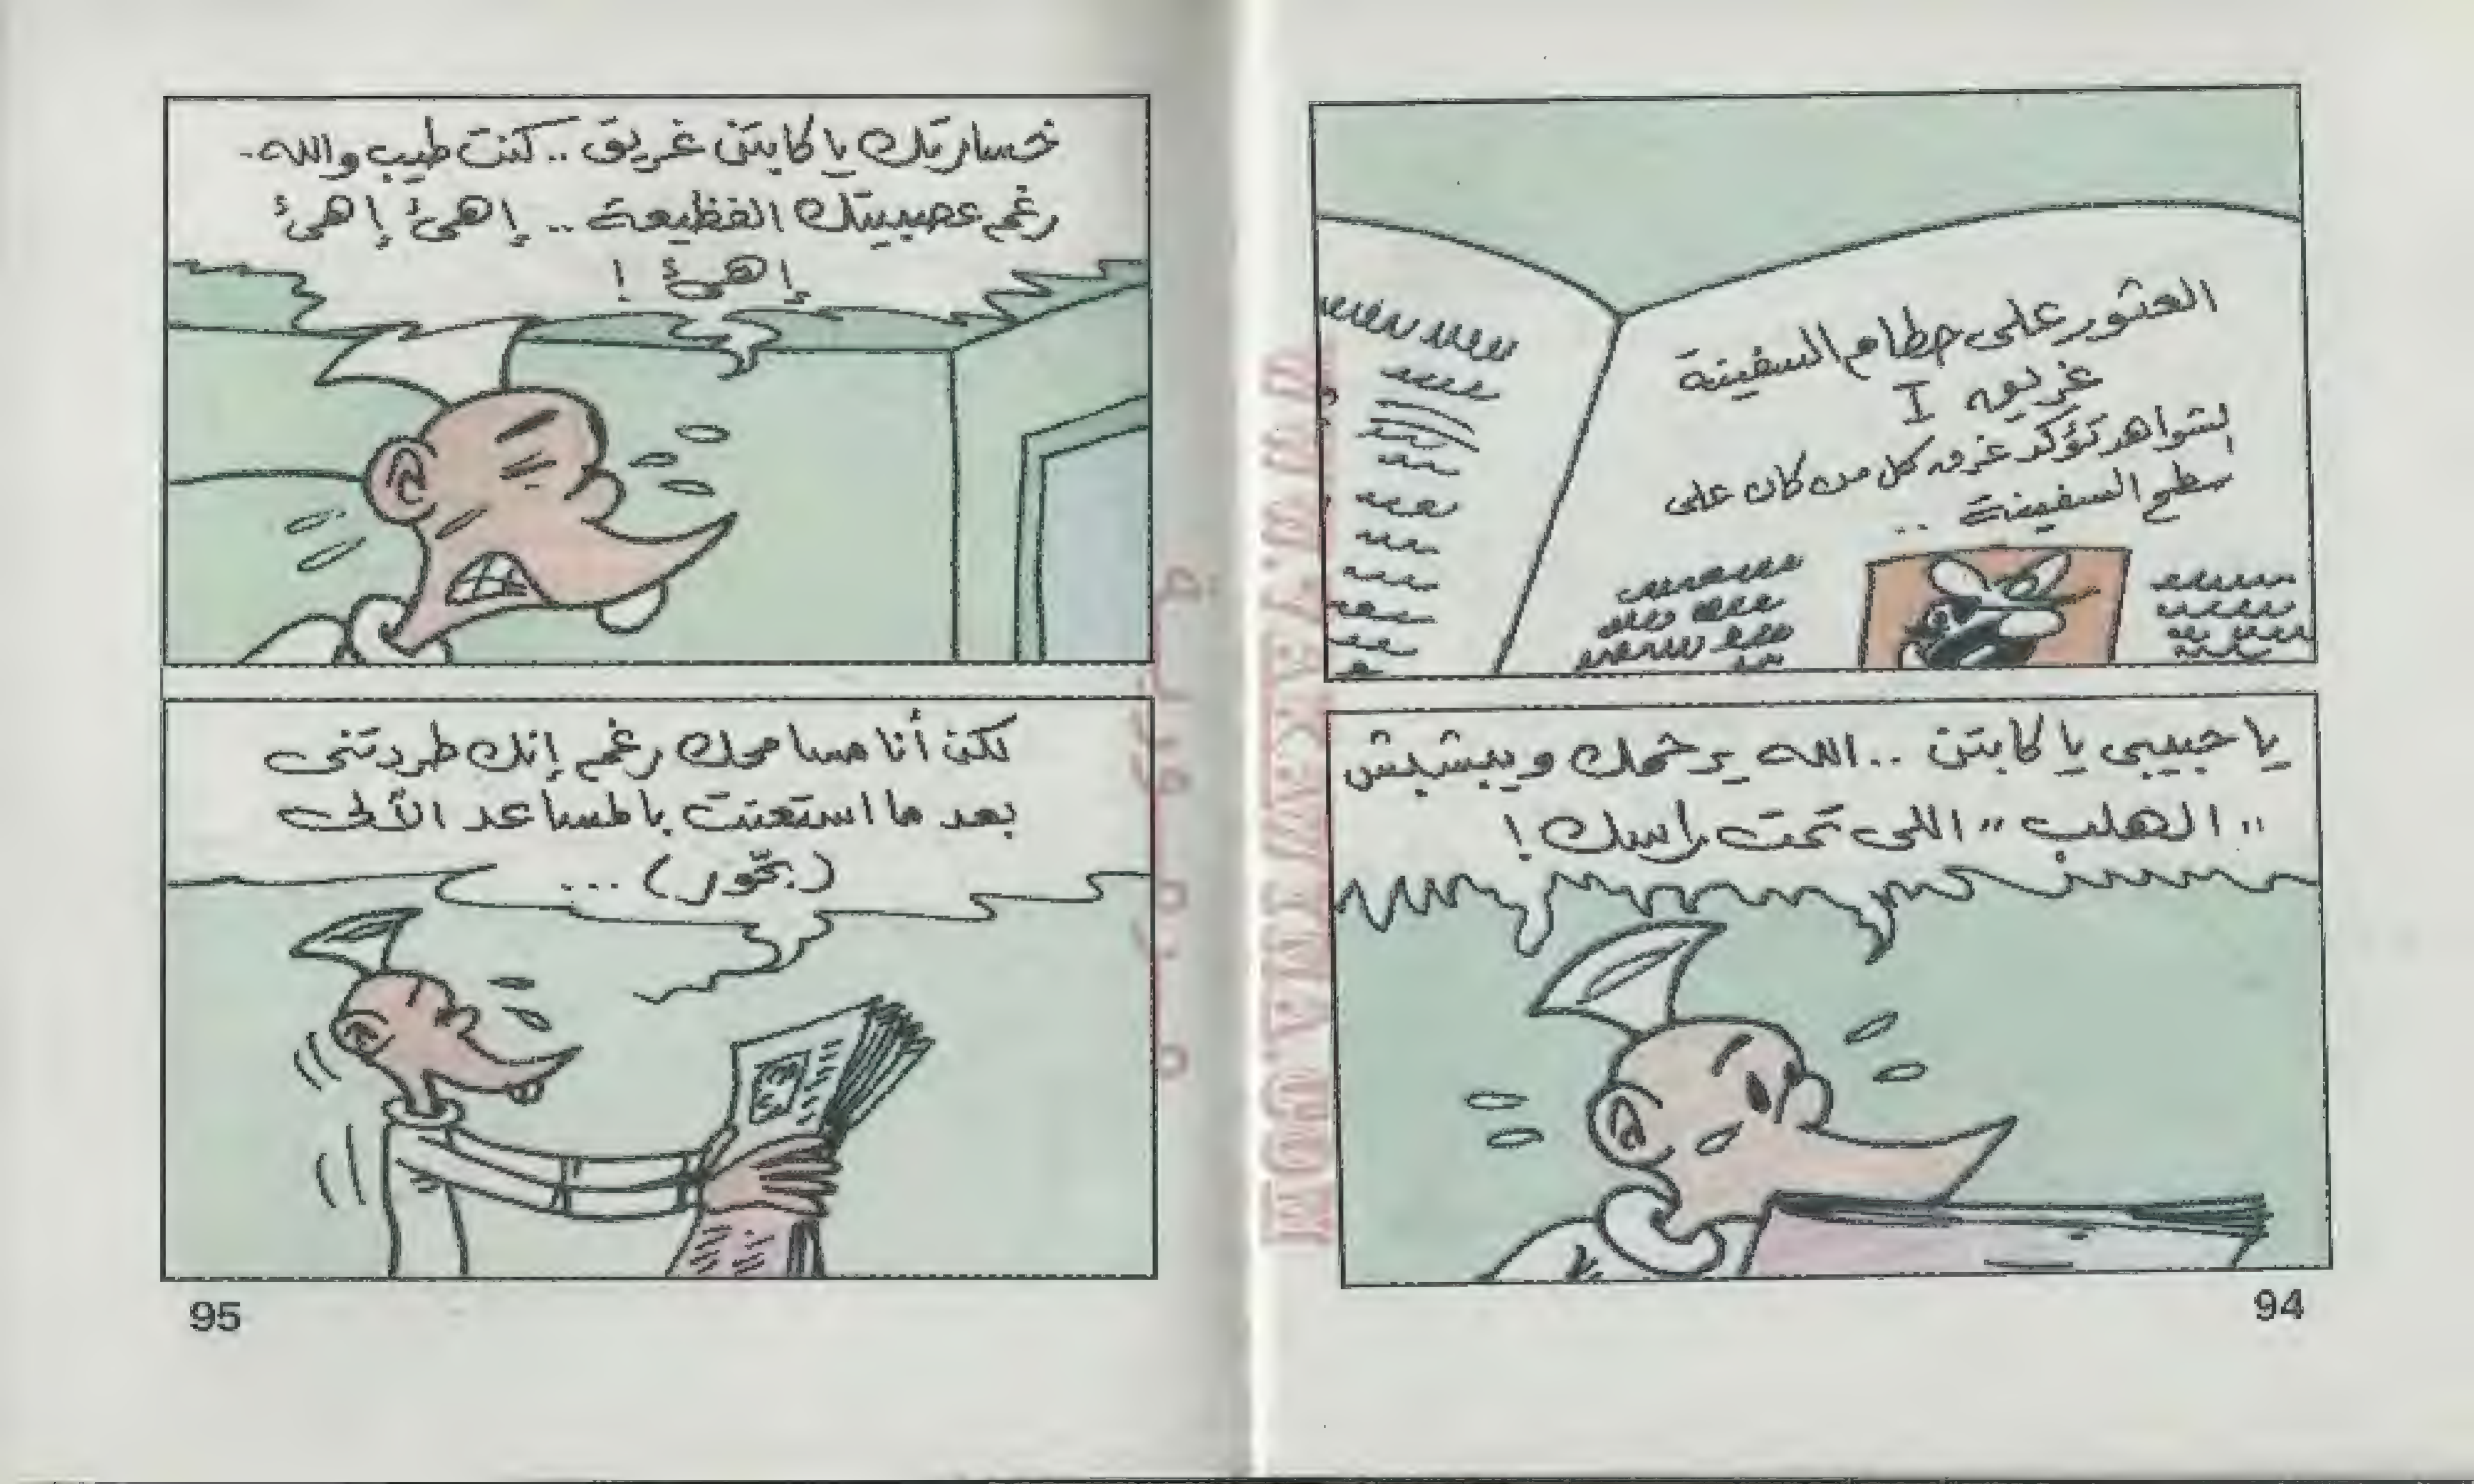 العثور على حطام السفينة
غريق I
الشواهد تؤكد غرق كل من كان على
سطح السفينة ..
يا حبيبى يا كابتن .. الله يرحمك ويبشبش
"الهلب" اللى تحت راسك !
94
خسارتك يا كابتن غريق .. كنت طيب والله
رغم عصبيتك الفظيعة .. إهئ إهئ
إهئ !
لكن أنا مسامحك رغم إنك طردتنى
بعد ما استعنت بالمساعد الآلى
(بحّور) ...
95